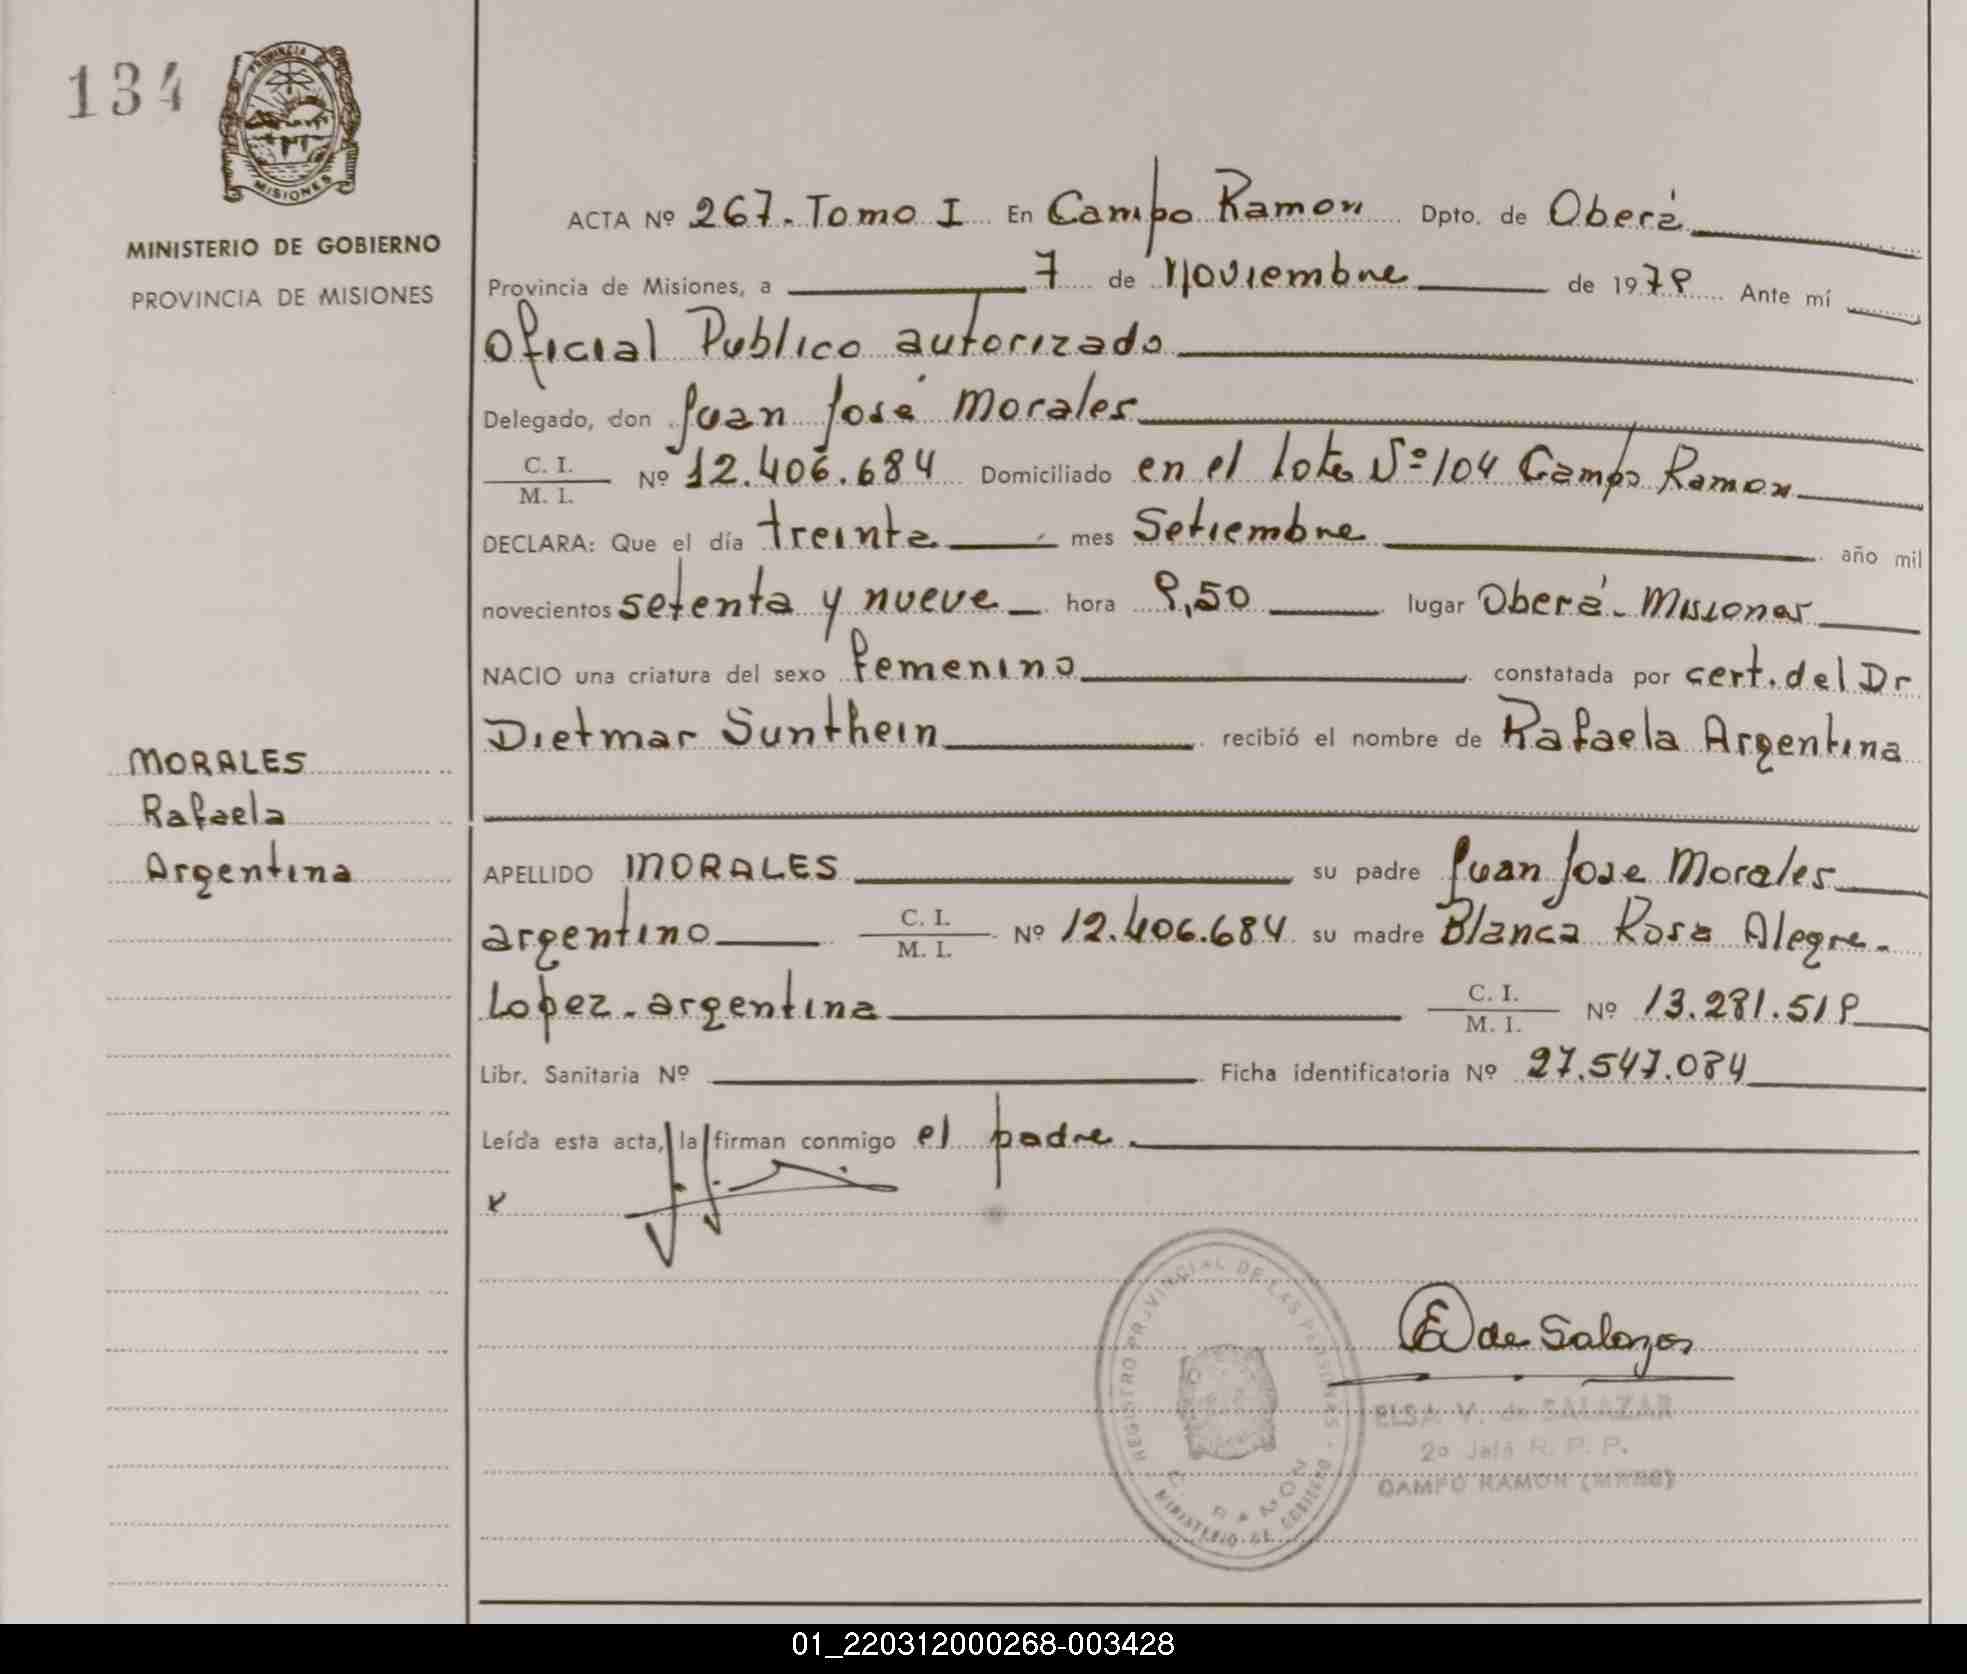 134
PROVINCIA DE
MISIONES
MINISTERIO DE GOBIERNO
PROVINCIA DE MISIONES
ACTA Nº 267. Tomo I En Campo Ramon Dpto. de Oberá
Provincia de Misiones, a 7 de Noviembre de 1979 Ante mí
Oficial Publico autorizado
Delegado, don Juan José Morales
C. I. / M. I. Nº 12.406.684 Domiciliado en el lote Nº 104 Campo Ramon
DECLARA: Que el día treinta mes Setiembre año mil
novecientos setenta y nueve hora 9,50 lugar Oberá - Misiones
NACIO una criatura del sexo femenino constatada por cert. del Dr
Dietmar Sunthein recibió el nombre de Rafaela Argentina
MORALES
Rafaela
Argentina
APELLIDO MORALES su padre Juan Jose Morales
argentino C. I. / M. I. Nº 12.406.684 su madre Blanca Rosa Alegre-
Lopez - argentina C. I. / M. I. Nº 13.281.519
Libr. Sanitaria Nº Ficha identificatoria Nº 27.547.084
Leída esta acta, la firman conmigo el padre.
x
REGISTRO PROVINCIAL DE LAS PERSONAS - MINISTERIO DE GOBIERNO
C. RAMON
E de Salazar
ELSA V. de SALAZAR
2º Jefa R. P. P.
CAMPO RAMON (MNES)
01_220312000268-003428